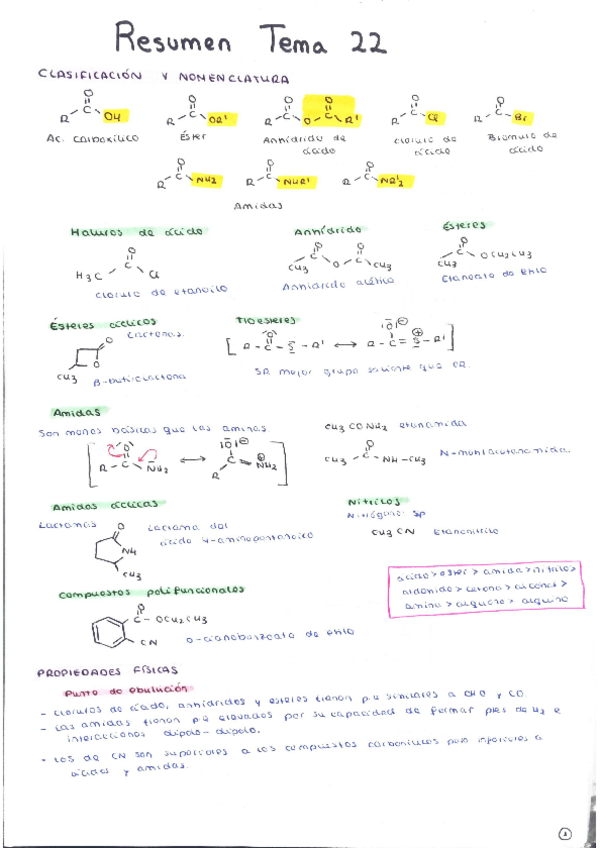 Resumen Tema 22
CLASIFICACIÓN Y NOMENCLATURA
R C O OH
R C O OR'
R C O O C O R'
R C O Cl
R C O Br
Ac. carboxílico
Éster
Anhídrido de ácido
Cloruro de ácido
Bromuro de ácido
R C O NH2
R C O NHR'
R C O NR'2
Amidas
Haluros de ácido
Anhídrido
Ésteres
H3C C O Cl
CH3 C O O C O CH3
CH3 C O OCH2CH3
Cloruro de etanoilo
Anhídrido acético
Etanoato de etilo
Ésteres cíclicos
Lactonas.
Tioesteres
O O CH3
β-butirolactona
[ R - C - S - R' ↔ R - C = S - R' ]
SR mejor grupo saliente que OR.
Amidas
Son menos básicas que las aminas.
CH3 CO NH2 etanamida
[ R - C NH2 ↔ R C NH2 ]
CH3 - C O - NH - CH3 N-metiletanamida.
Amidas cíclicas
Lactamas
O NH CH3
Lactama del
ácido 4-aminopentanoico
Nitrilos
Nitrógeno: sp
CH3 CN Etanonitrilo
ácido > ester > amida > nitrilo >
aldehido > cetona > alcohol >
amina > alqueno > alquino
Compuestos polifuncionales
O C - OCH2CH3
CN
o-cianobenzoato de etilo
PROPIEDADES FÍSICAS
Punto de ebullición
- Cloruros de ácido, anhídridos y esteres tienen p.e similares a CHO y CO
- Las amidas tienen p.e elevados por su capacidad de formar ptes de H2 e
interacciones dipolo-dipolo.
- Los de CN son superiores a los compuestos carbonilicos pero inferiores a
ácidos y amidas.
1